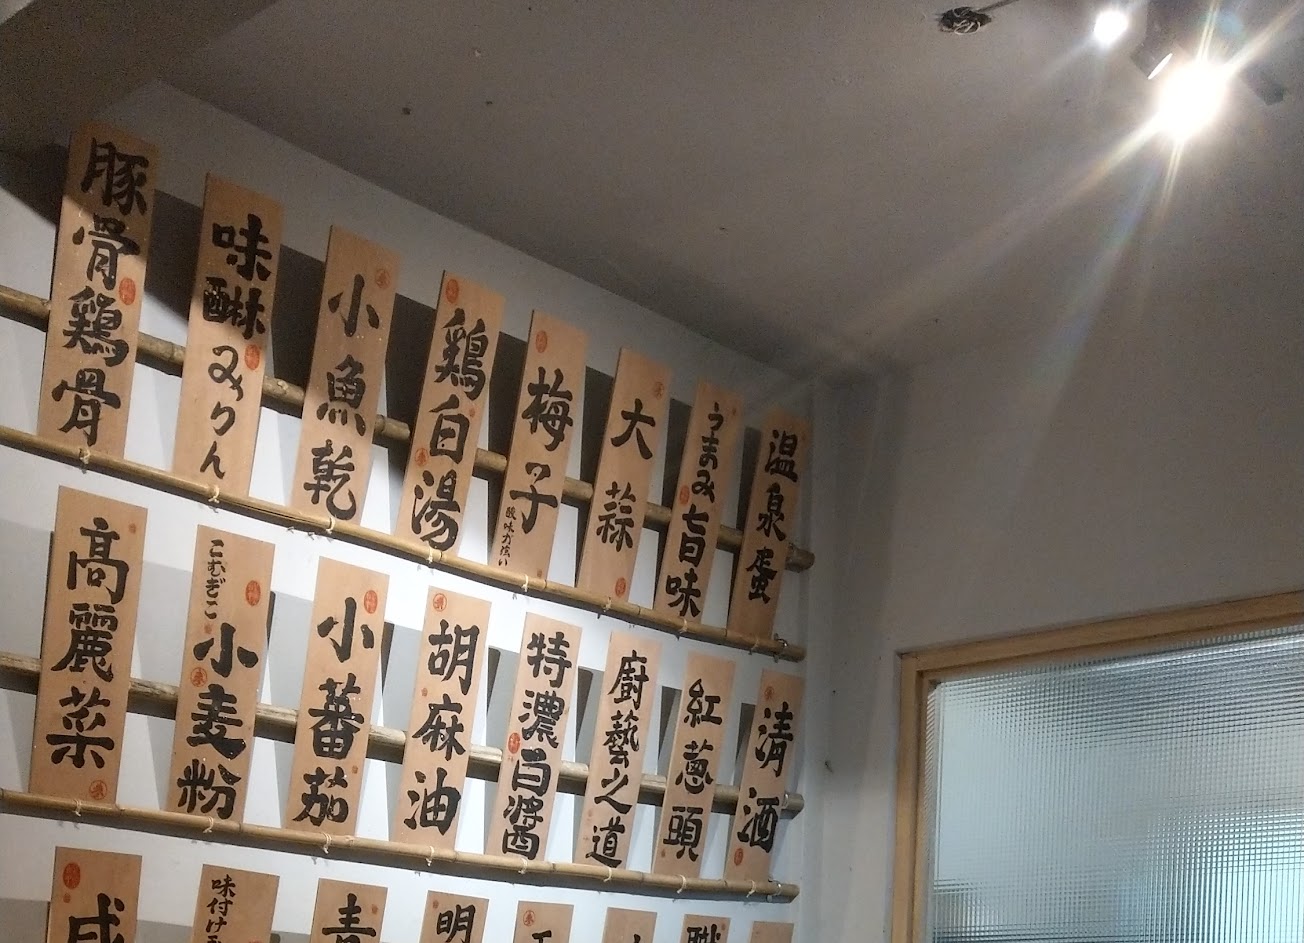 豚骨鶏骨
味醂みりん
小魚乾
鶏白湯
梅子
大蒜
うまみ旨味
温泉蛋
高麗菜
こむぎこ
小麦粉
小蕃茄
胡麻油
特濃白醬
廚藝之道
紅蔥頭
清酒
味付け
青
明